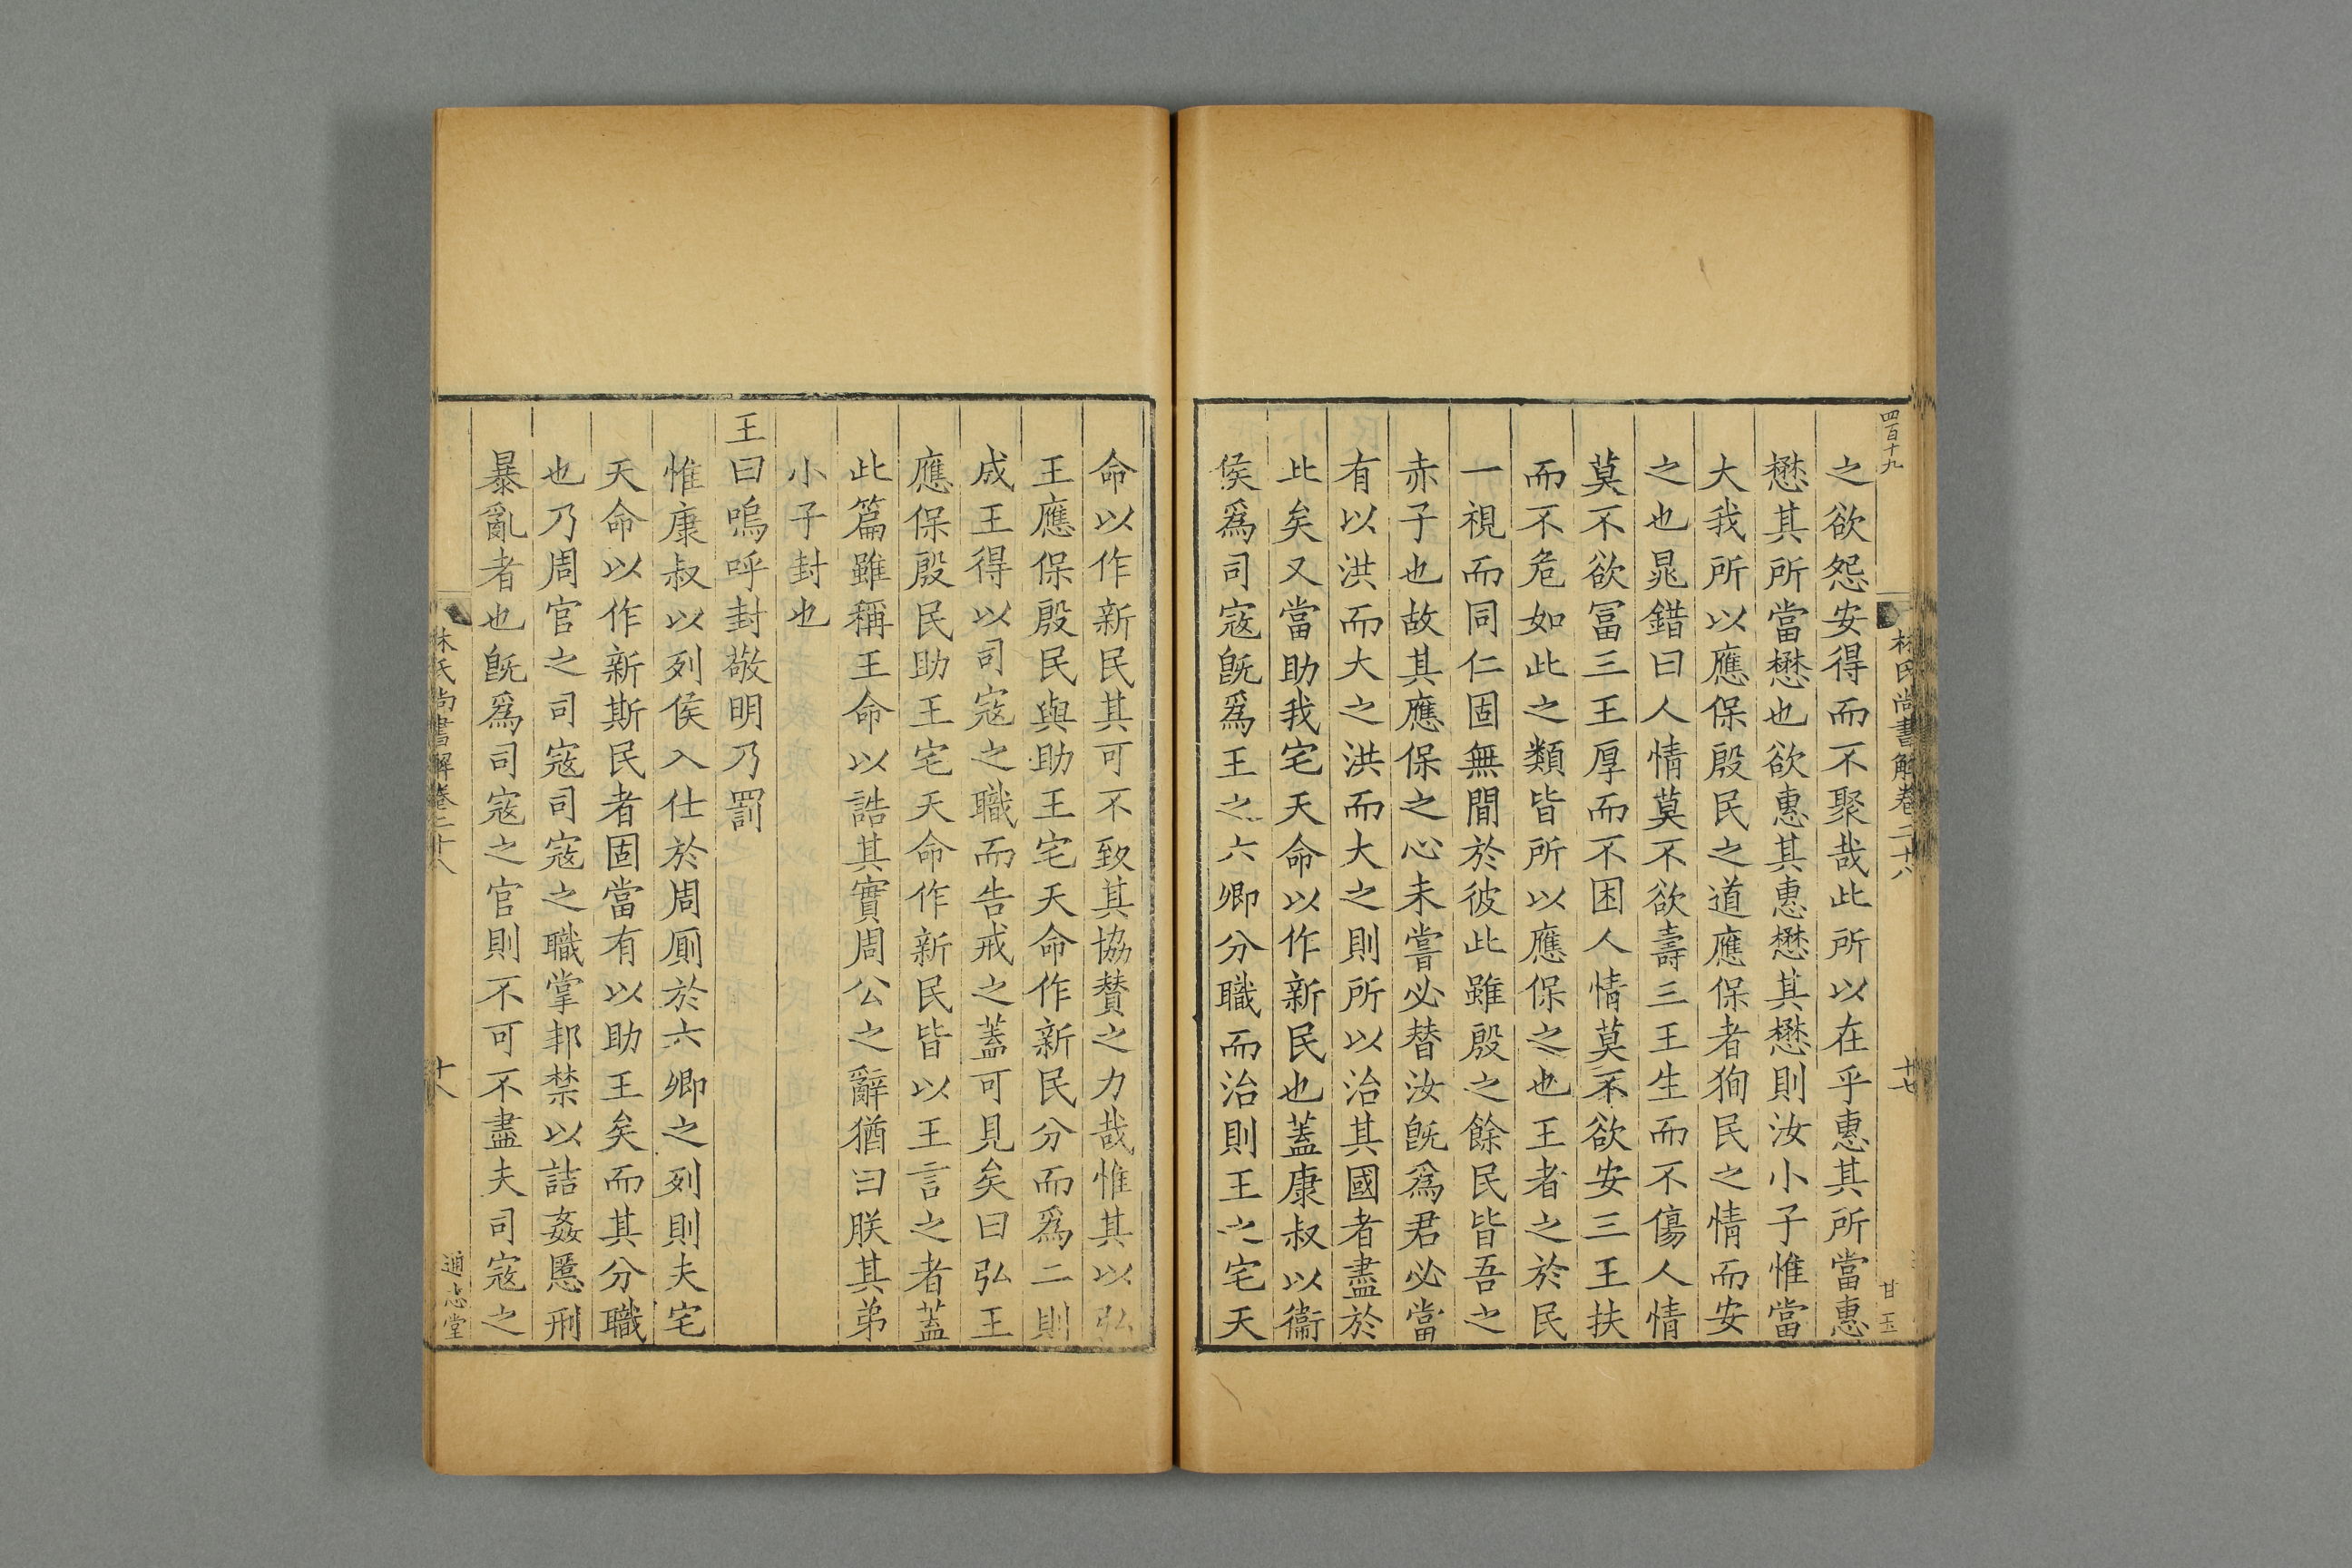 四百十九
林氏尚書解卷二十八
十七
甘玉
之欲怨安得而不聚哉此所以在乎惠其所當惠
懋其所當懋也欲惠其惠懋其懋則汝小子惟當
大我所以應保殷民之道應保者狥民之情而安
之也晁錯曰人情莫不欲壽三王生而不傷人情
莫不欲冨三王厚而不困人情莫不欲安三王扶
而不危如此之類皆所以應保之也王者之於民
一視而同仁固無間於彼此雖殷之餘民皆吾之
赤子也故其應保之心未嘗必替汝旣爲君必當
有以洪而大之洪而大之則所以治其國者盡於
此矣又當助我宅天命以作新民也蓋康叔以衞
侯爲司寇旣爲王之六卿分職而治則王之宅天
命以作新民其可不致其協賛之力哉惟其以弘
王應保殷民與助王宅天命作新民分而爲二則
成王得以司寇之職而告戒之蓋可見矣曰弘王
應保殷民助王宅天命作新民皆以王言之者蓋
此篇雖稱王命以誥其實周公之辭猶曰朕其弟
小子封也
王曰嗚呼封敬明乃罰
惟康叔以列侯入仕於周厠於六卿之列則夫宅
天命以作新斯民者固當有以助王矣而其分職
也乃周官之司寇司寇之職掌邦禁以詰姦慝刑
暴亂者也旣爲司寇之官則不可不盡夫司寇之
林氏尚書解卷二十八
十八
通志堂